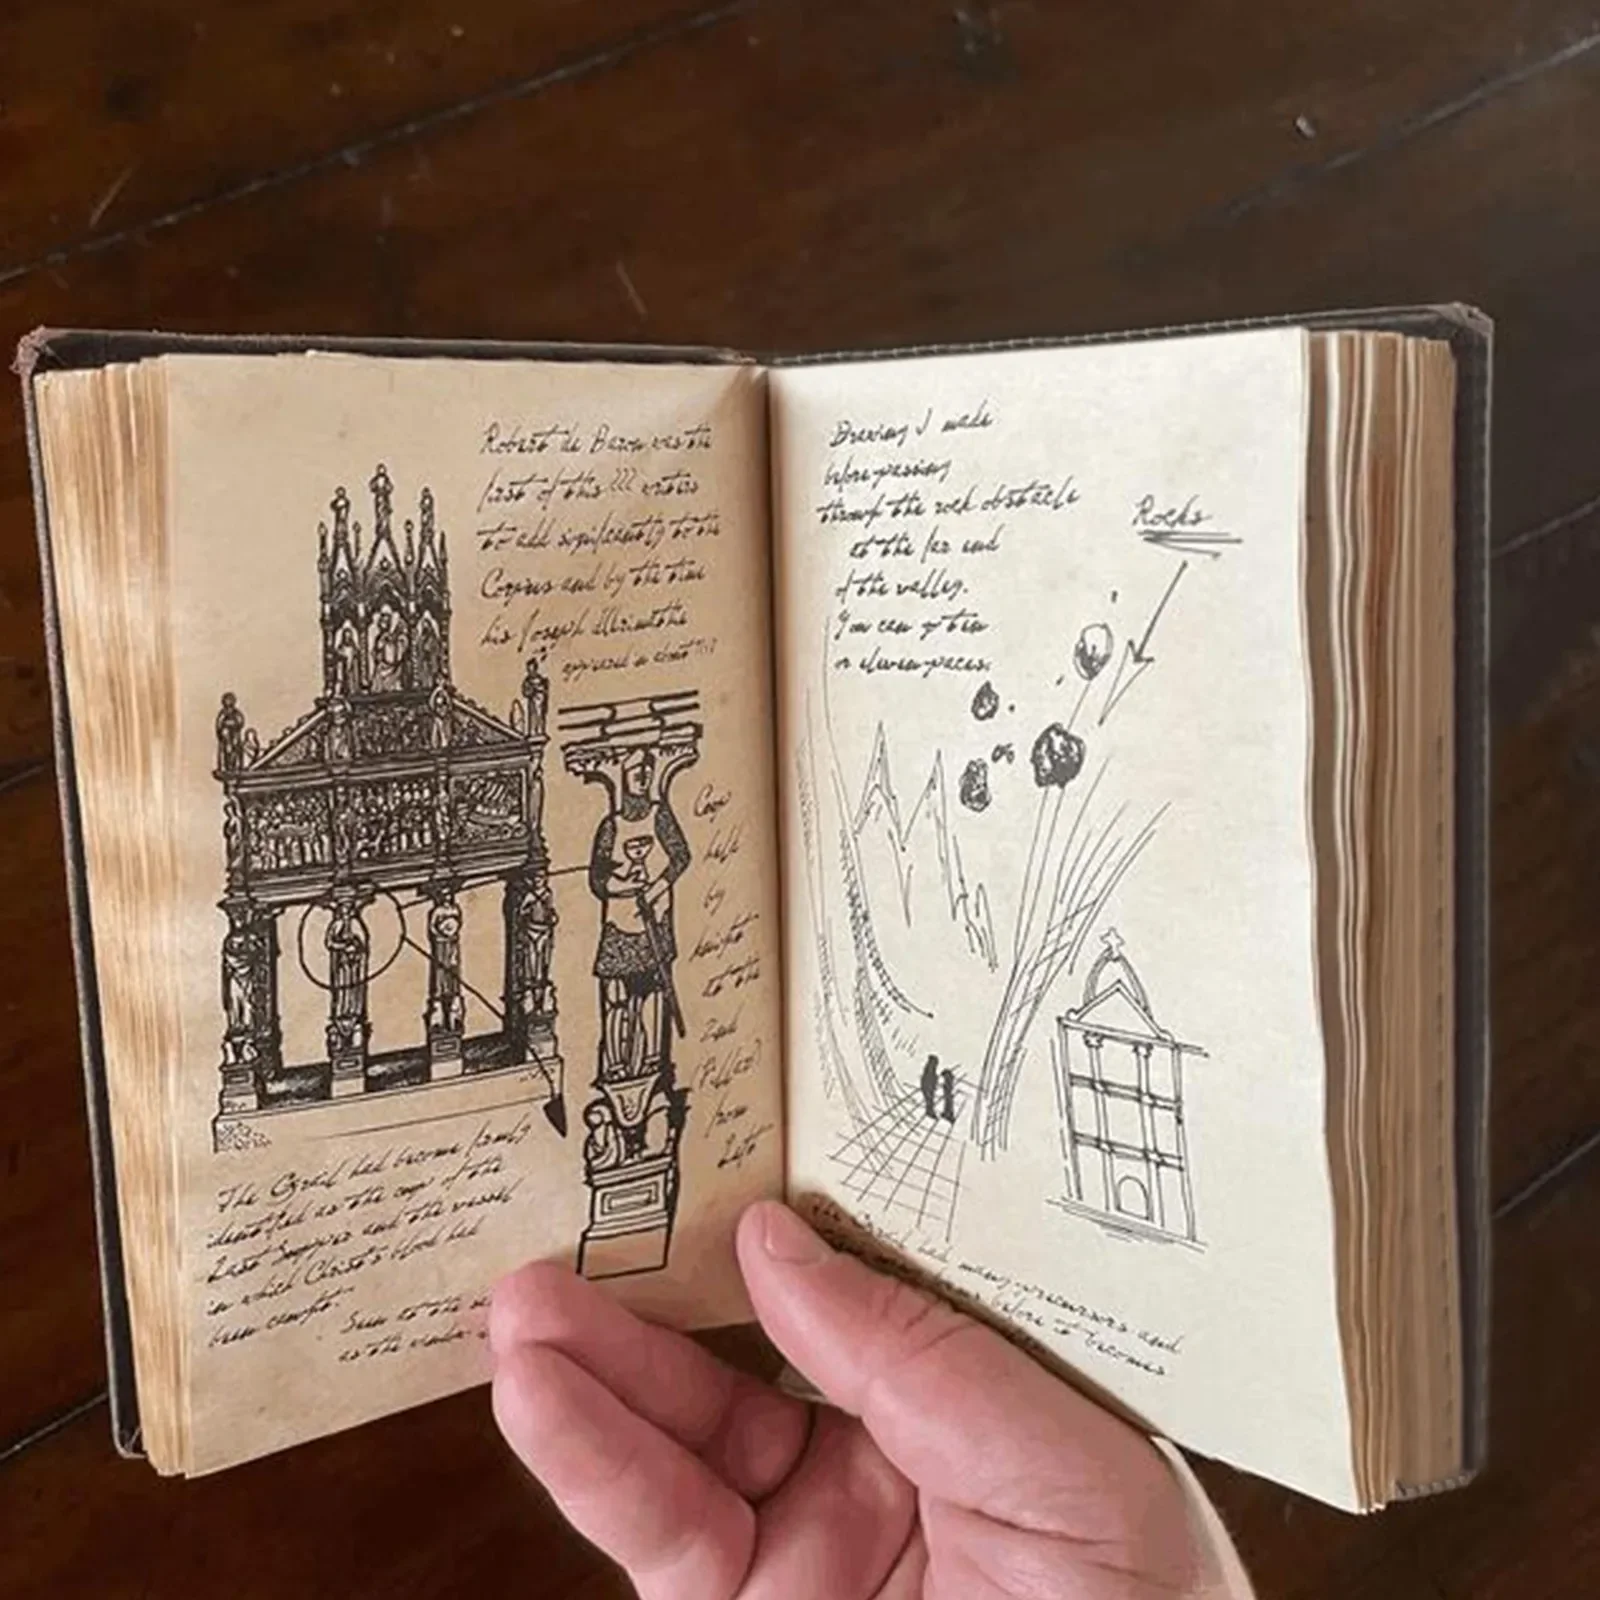 Robert de Boron was the
first of this ??? writers
to add significantly to the
Corpus and by the time
his Joseph
appeared in about
Cup
held
by
knight
at the
2nd
(Pillar)
from
Left
The Grail had become firmly
identified as the cup of the
Last Supper and the vessel
in which Christ's blood had
been caught.
Seen to the
as the
Drawing I made
before passing
through the rock obstacle
at the far end
of the valley.
You can go ten
or eleven paces.
Rocks
The Grail had many precursors and
before it becomes